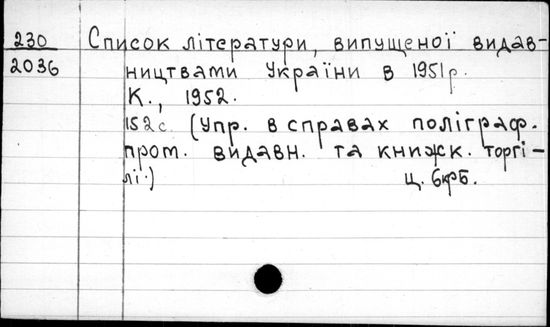 230 Список літератури, випущеної видав-
2036 ництвами України в 1951 р.
К., 1952.
152 с. (Упр. в справах поліграф.
пром. видавн. та книжк. торгі-
лі.) ц. 6крб.